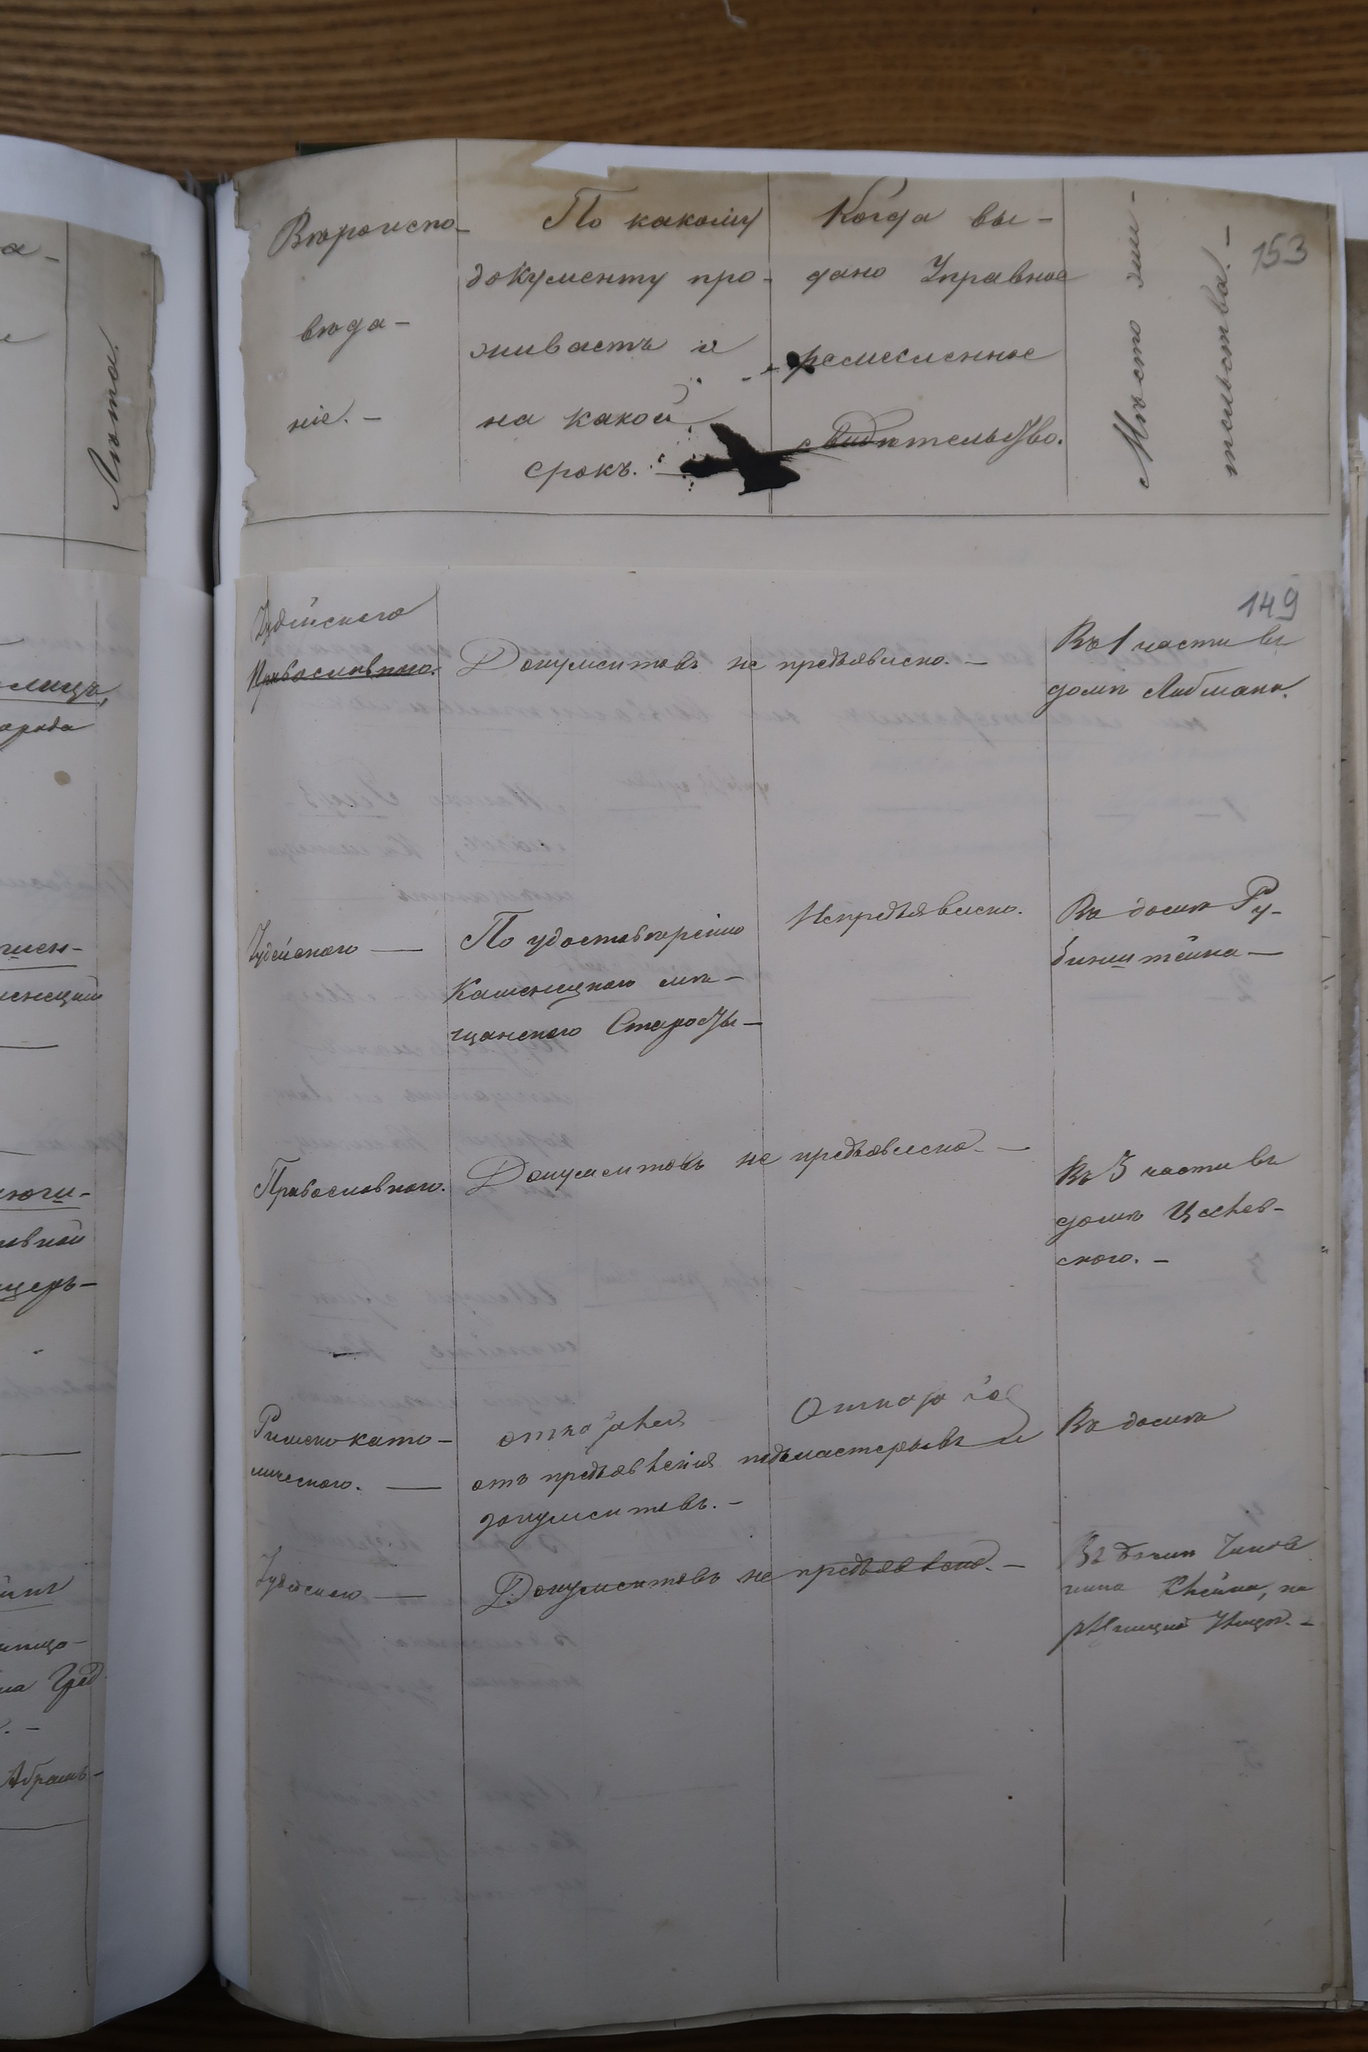 а-
Лѣта.
лицъ,
города
Вѣроиспо-
вѣда-
ніе. -
По какому
документу про-
живаетъ и
на какой
срокъ. -
Когда вы-
дано Управное
ремесленное
свидѣтельство.
Мѣсто жи-
тельства. -
153
149
Іудейскаго
Православнаго.
Документовъ не предъявлено. -
Въ 1 части въ
домѣ Либмана.
Іудейскаго —
По удостовѣренію
Каменецкаго мѣ-
щанскаго Старосты -
Непредъявлено.
Въ домѣ Ру-
бинштейна —
Православнаго.
Документовъ не предъявлено. -
Въ 3 части въ
домѣ
скаго. -
Римскокато-
лическаго. —
отказался
отъ предъявленія
документовъ. -
подмастерьевъ и
Въ домѣ
Іудейскаго —
Документовъ не предъявлено. -
Въ домѣ Чинов
ника Клейна, на
улицѣ. -
Абрамъ-